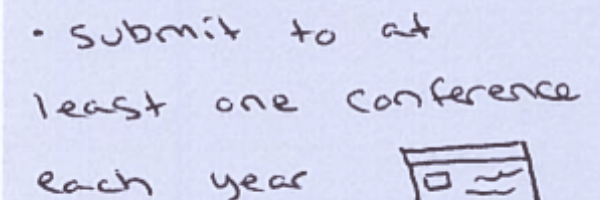 • submit to at
least one conference
each year